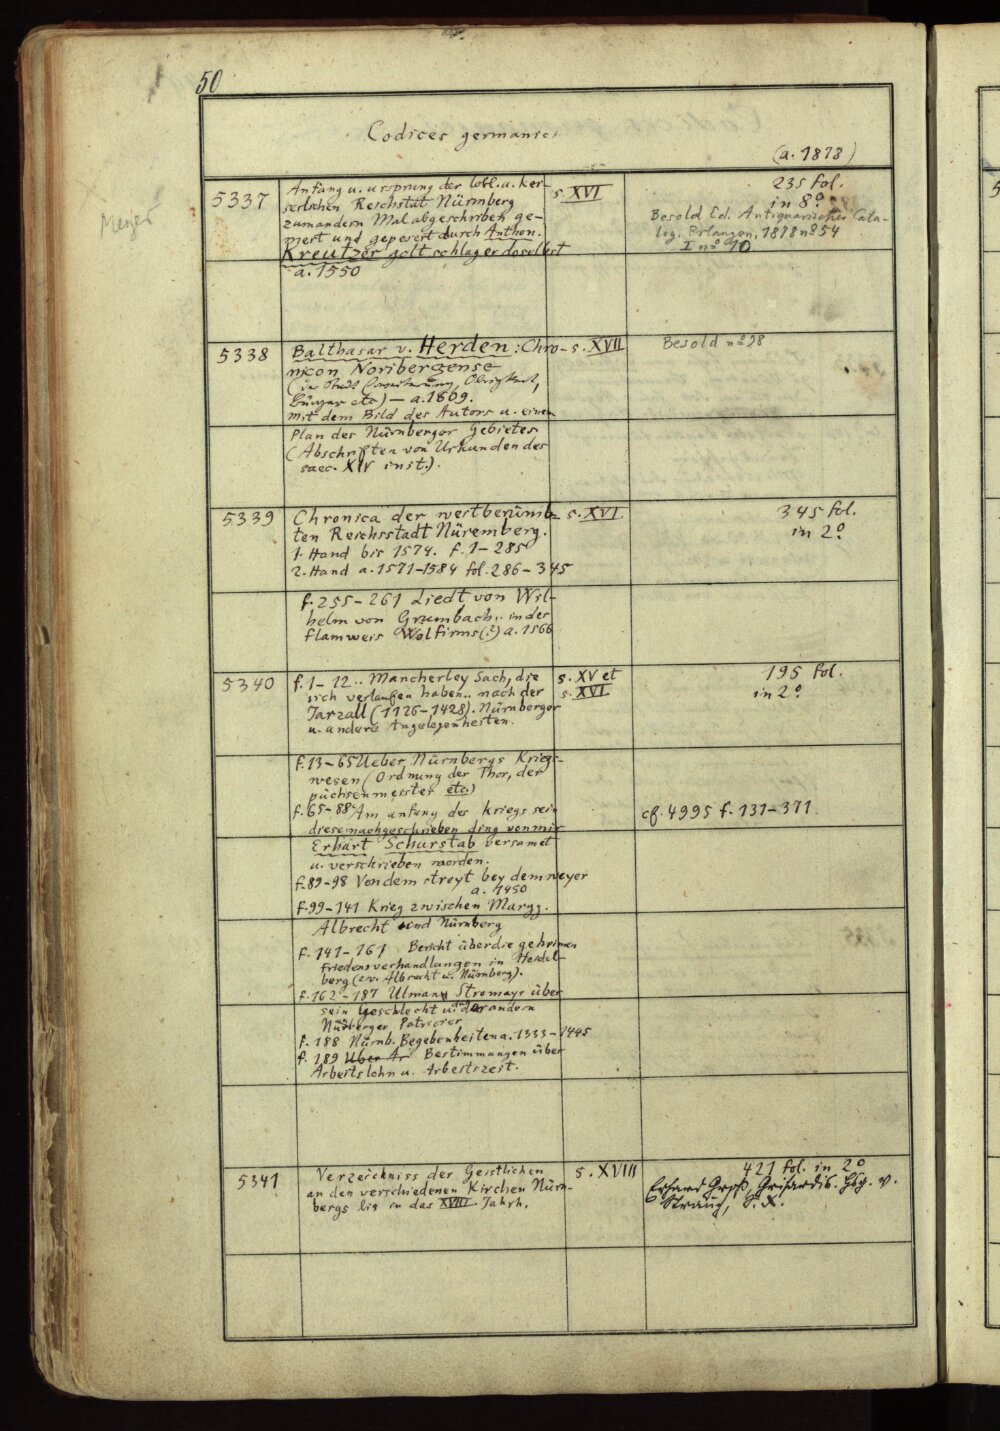 50
Codices germanici
(a. 1878)
Meyer
5337
Anfang u. ursprung der lobl. u. kei-
serlichen Reichstat Nürmberg
zum andern Mal abgeschriben ge-
mert und gepesert durch Anthon.
Kreutzer goltschlager doselbst
a. 1550
s. XVI
235 fol.
in 8º
Besold Ed. Antiquarischer Cata-
log. Erlangen, 1878 nº 54
I nº 10
5338
Balthasar v. Herden: Chro-
nicon Noribergense
(in Stadt Obrigkeit,
Bürger etc) — a. 1609.
mit dem Bild des Autors u. einem
Plan des Nürnberger Gebietes
(Abschriften von Urkunden des
saec. XIV init.).
s. XVII
Besold nº 28
5339
Chronica der weitberümb-
ten Reichsstadt Nüremberg.
1. Hand bis 1574. f. 1–285
2. Hand a. 1571–1584 fol. 286–345
f. 255–261 Liedt von Wil-
helm von Grumbach.. in des
flamweis Wolfirms(?) a. 1566
s. XVI.
345 fol.
in 2º
5340
f. 1–12.. Mancherley Sach, die
sich verlaufen haben.. nach der
Jarzall (1126–1428). Nürnberger
u. andere Angelegenheiten.
s. XV et
s. XVI.
195 fol.
in 2º
f. 13–65 Ueber Nürnbergs Kriegs-
wesen (Ordnung der Thor, der
püchsenmeister etc.)
f. 65–88 Am anfang des kriegs sein
diese nachgeschrieben ding von mir
Erhart Schurstab versamet
u. verschrieben worden.
cf. 4995 f. 131–371
f. 89–98 Von dem streyt bey dem weyer
a. 1450
f. 99–141 Krieg zwischen Margg.
Albrecht und Nürnberg
f. 141–161 Bericht über die geheimen
Friedensverhandlungen in Heidel-
berg (zw. Albrecht u. Nürnberg).
f. 162–187 Ulman Stromayr über
sein Geschlecht u. das der andern
Nürberger Patricier
f. 188 Nürnb. Begebenheiten a. 1333–1445
f. 189 Uber Ar Bestimmungen über
Arbeitslohn u. Arbeitszeit.
5341
Verzeichniss der Geistlichen
an den verschiedenen Kirchen Nürn-
bergs bis in das XVIII. Jahrh.
s. XVIII
421 fol. in 2º
Erhard Groß, Grisardis. Hsg. v.
Strauch, S. X.